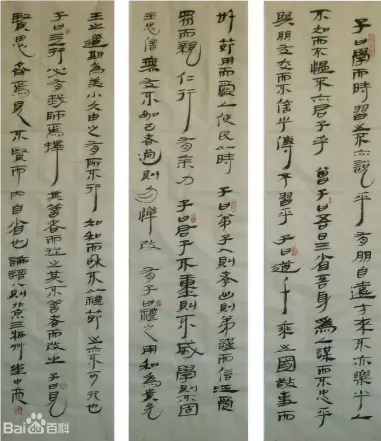 子曰學而時習之不亦說乎 有朋自遠方來不亦樂乎人
不知而不慍不亦君子乎 曾子曰吾日三省吾身 為人謀而不忠乎
與朋友交而不信乎傳不習乎 子曰道千乘之國敬事而
節用而愛人使民以時 子曰弟子入則孝出則弟謹而信汎愛
眾而親仁行有餘力 子曰君子不重則不威學則不固
主忠信無友不如己者過則勿憚改 有子曰禮之用和為貴先
王之道斯為美小大由之有所不行 知和而和不以禮節之亦不可行也
子曰三人行必有我師焉擇其善者而從之其不善者而改之 子曰見
賢思齊焉見不賢而內自省也 論語八則
Bai百科